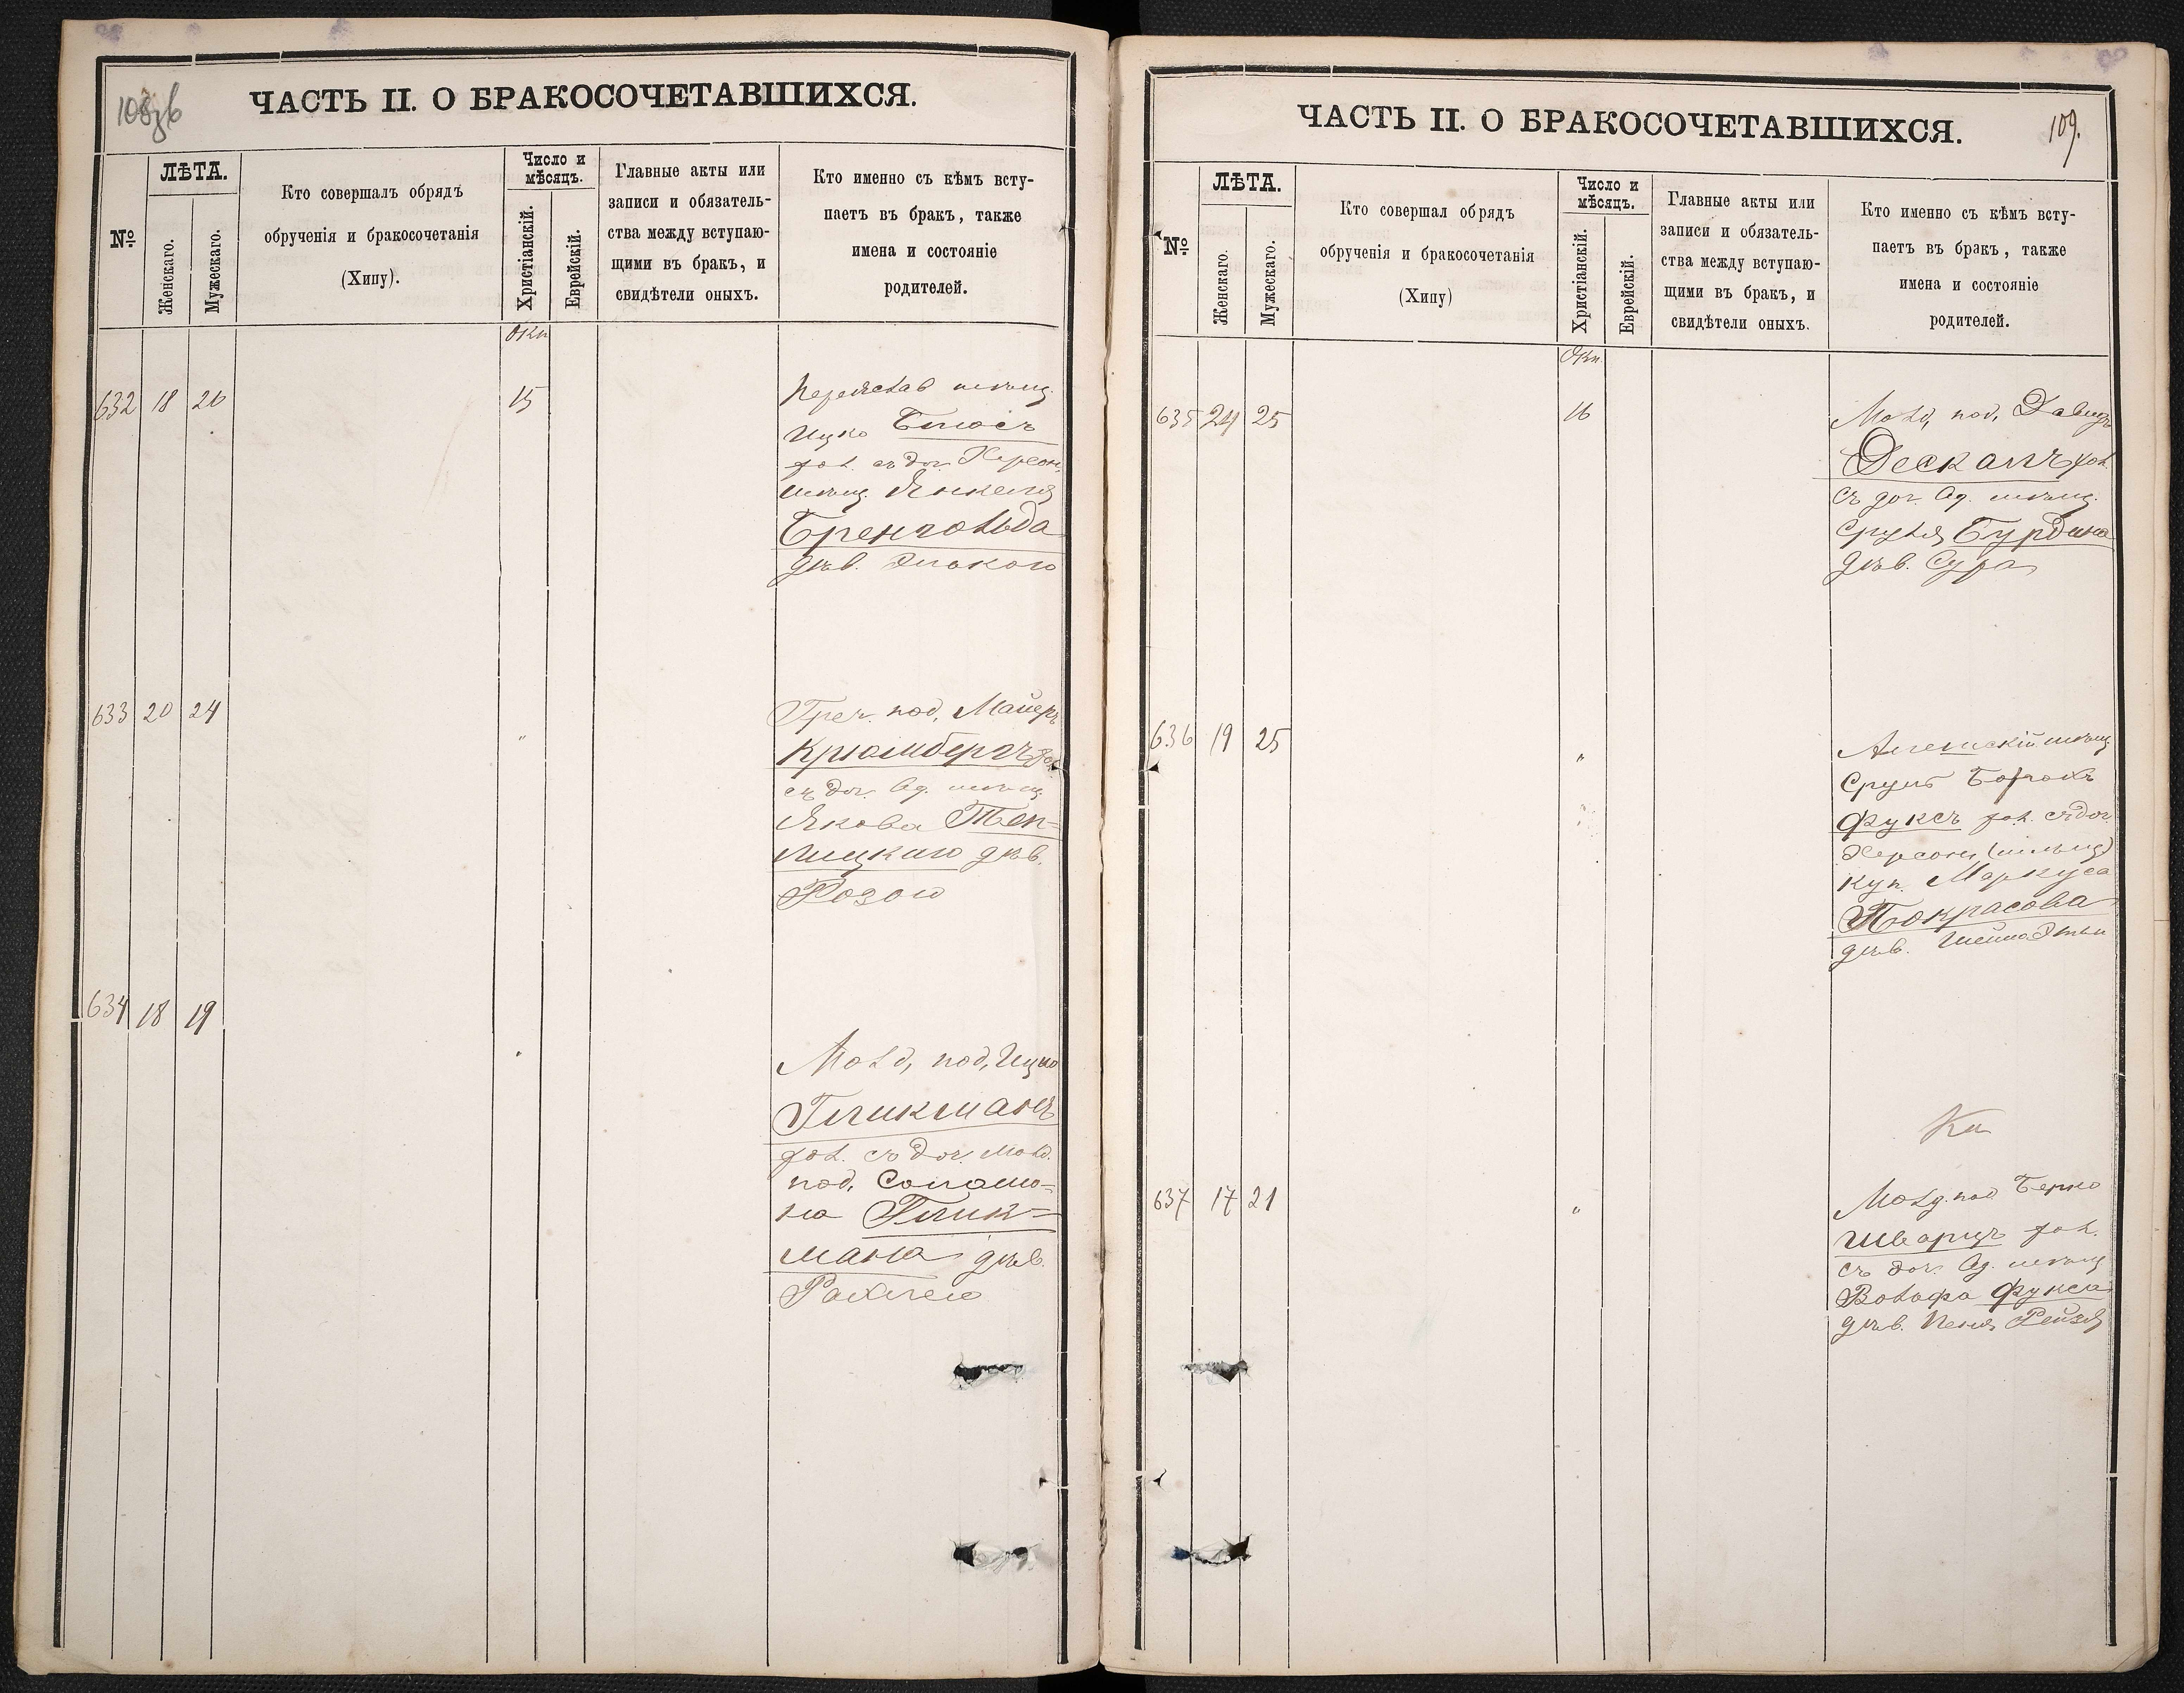 ЧАСТЬ II. О БРАКОСОЧЕТАВШИХСЯ.
№
ЛѢТА.
Женскаго.
Мужескаго.
Кто совершалъ обрядъ
обрученія и бракосочетанія
(Хипу).
Число и
мѣсяцъ.
Христіанскій.
Еврейскій.
Главные акты или
записи и обязатель-
ства между вступаю-
щими въ бракъ, и
свидѣтели оныхъ.
Кто именно съ кѣмъ всту-
паетъ въ бракъ, также
имена и состояніе
родителей.
Окт
632 18 20 15
мѣщ.
Ицко
хол. съ доч. Херсон.
мѣщ. Янкеля
Бренгольда
дѣв.
633 20 24 "
Греч. под. Майеръ
Крюмбергъ хол
съ доч. Од. мѣщ.
Якова Теп=
лицкаго дѣв.
Розою
634 18 19 "
Молд. под. Ицко
Гликманъ
хол. съ доч. Молд.
под. Соломо=
на Глик=
мана дѣв.
Рахлею
ЧАСТЬ II. О БРАКОСОЧЕТАВШИХСЯ.
109.
№
ЛѢТА.
Женскаго.
Мужескаго.
Кто совершал обрядъ
обрученія и бракосочетанія
(Хипу)
Число и
мѣсяцъ.
Христіанскій.
Еврейскій.
Главные акты или
записи и обязатель-
ства между вступаю-
щими въ бракъ, и
свидѣтели оныхъ.
Кто именно съ кѣмъ всту-
паетъ въ бракъ, также
имена и состояніе
родителей.
Окт.
635 24 25 16
Молд. под. Давидъ
Дескалъ хол.
съ доч. Од. мѣщ.
Сруля Бурдина
дѣв. Сура
636 19 25 "
мѣщ
Сруль Борохъ
Фуксъ хол. съ доч
Херсон. (мѣщ)
куп. Маркуса
Покрасова
дѣв.
637 17 21 "
Молд. под Берко
Шварцъ хол.
съ доч. Од. мѣщ
Вольфа Фукса
дѣв. Рейзя